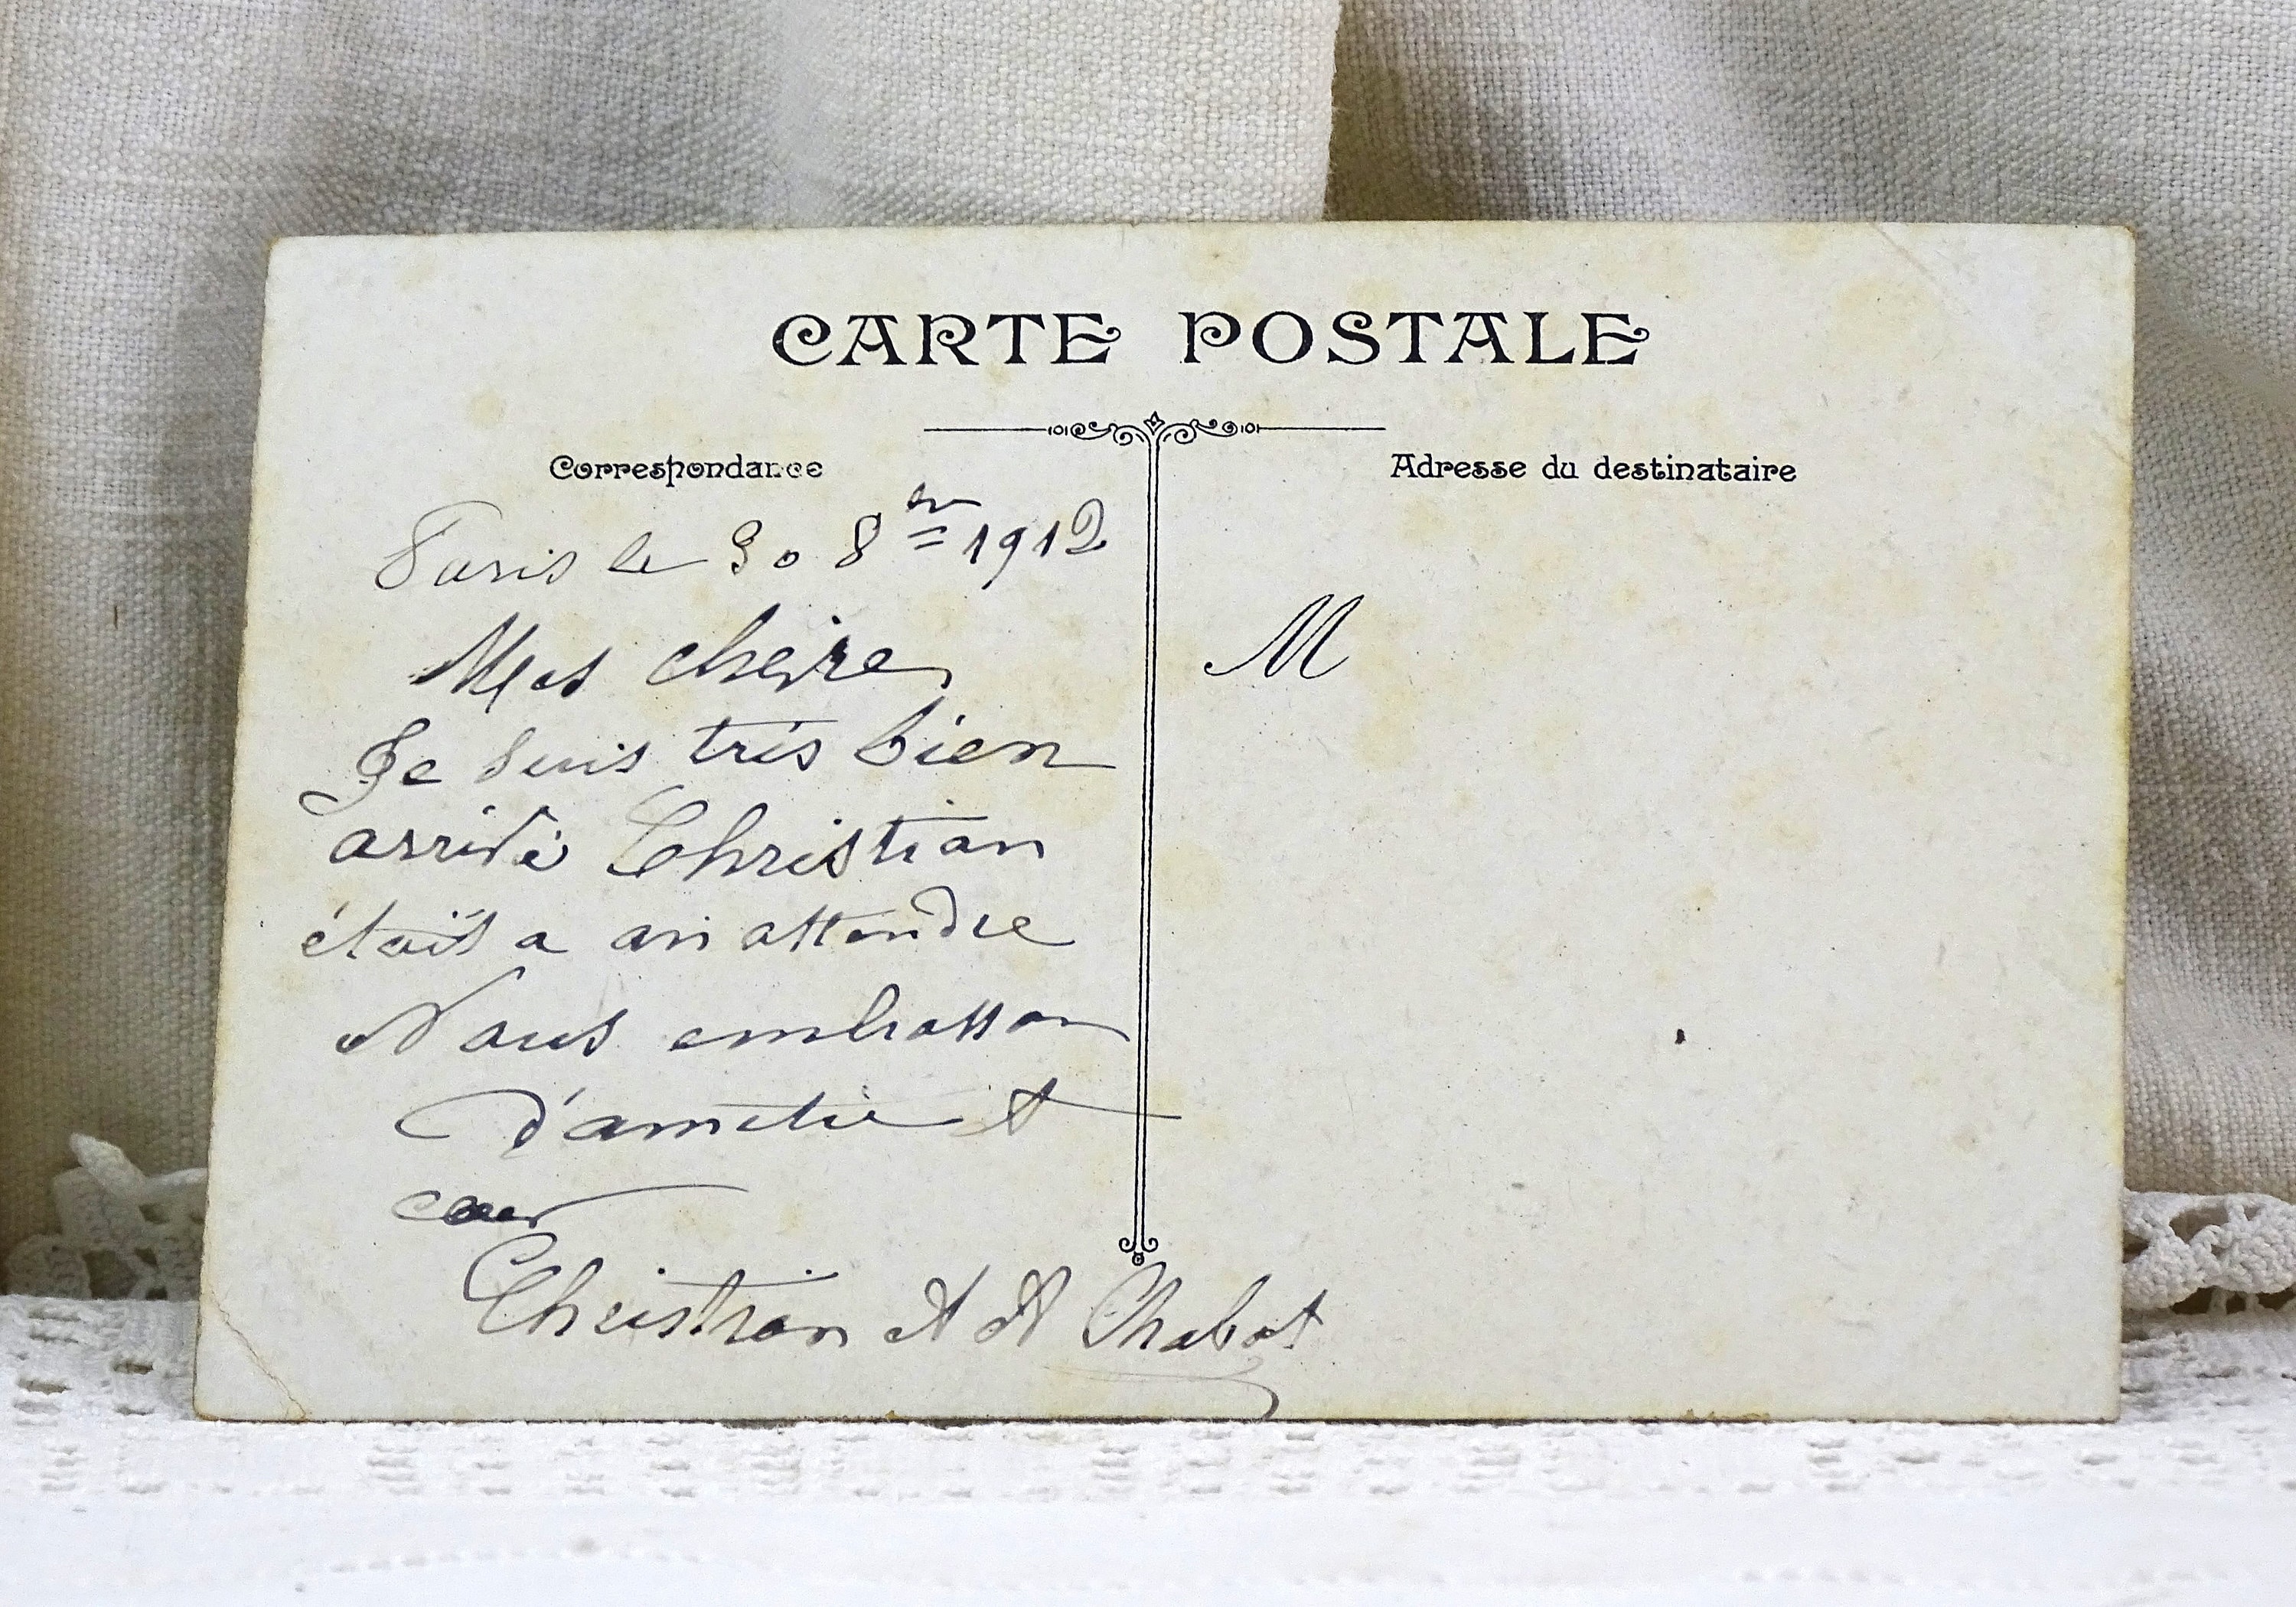 CARTE POSTALE
Correspondance
Adresse du destinataire
Paris le 30 8bre 1912
M
Mes chere
Je suis très bien
arrivé Christian
étais a attendre
Nous embrasson
d'ametie et
coeur
Christian et A Chabot